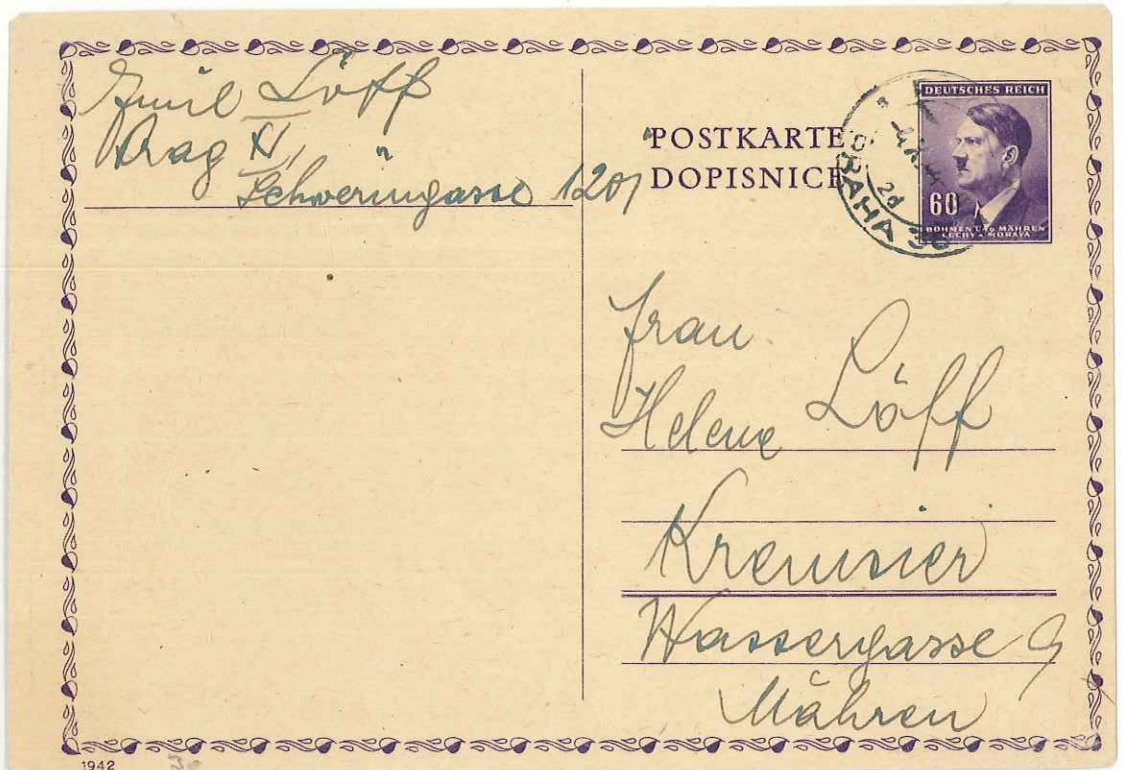 Emil Löff
Prag XI,
Schweringasse 1201
POSTKARTE
DOPISNICE
PRAHA 36
2d
DEUTSCHES REICH
60
BÖHMEN U. MÄHREN
ČECHY A MORAVA
Frau
Helene Löff
Kremsier
Wassergasse 9
Mähren
1942
36